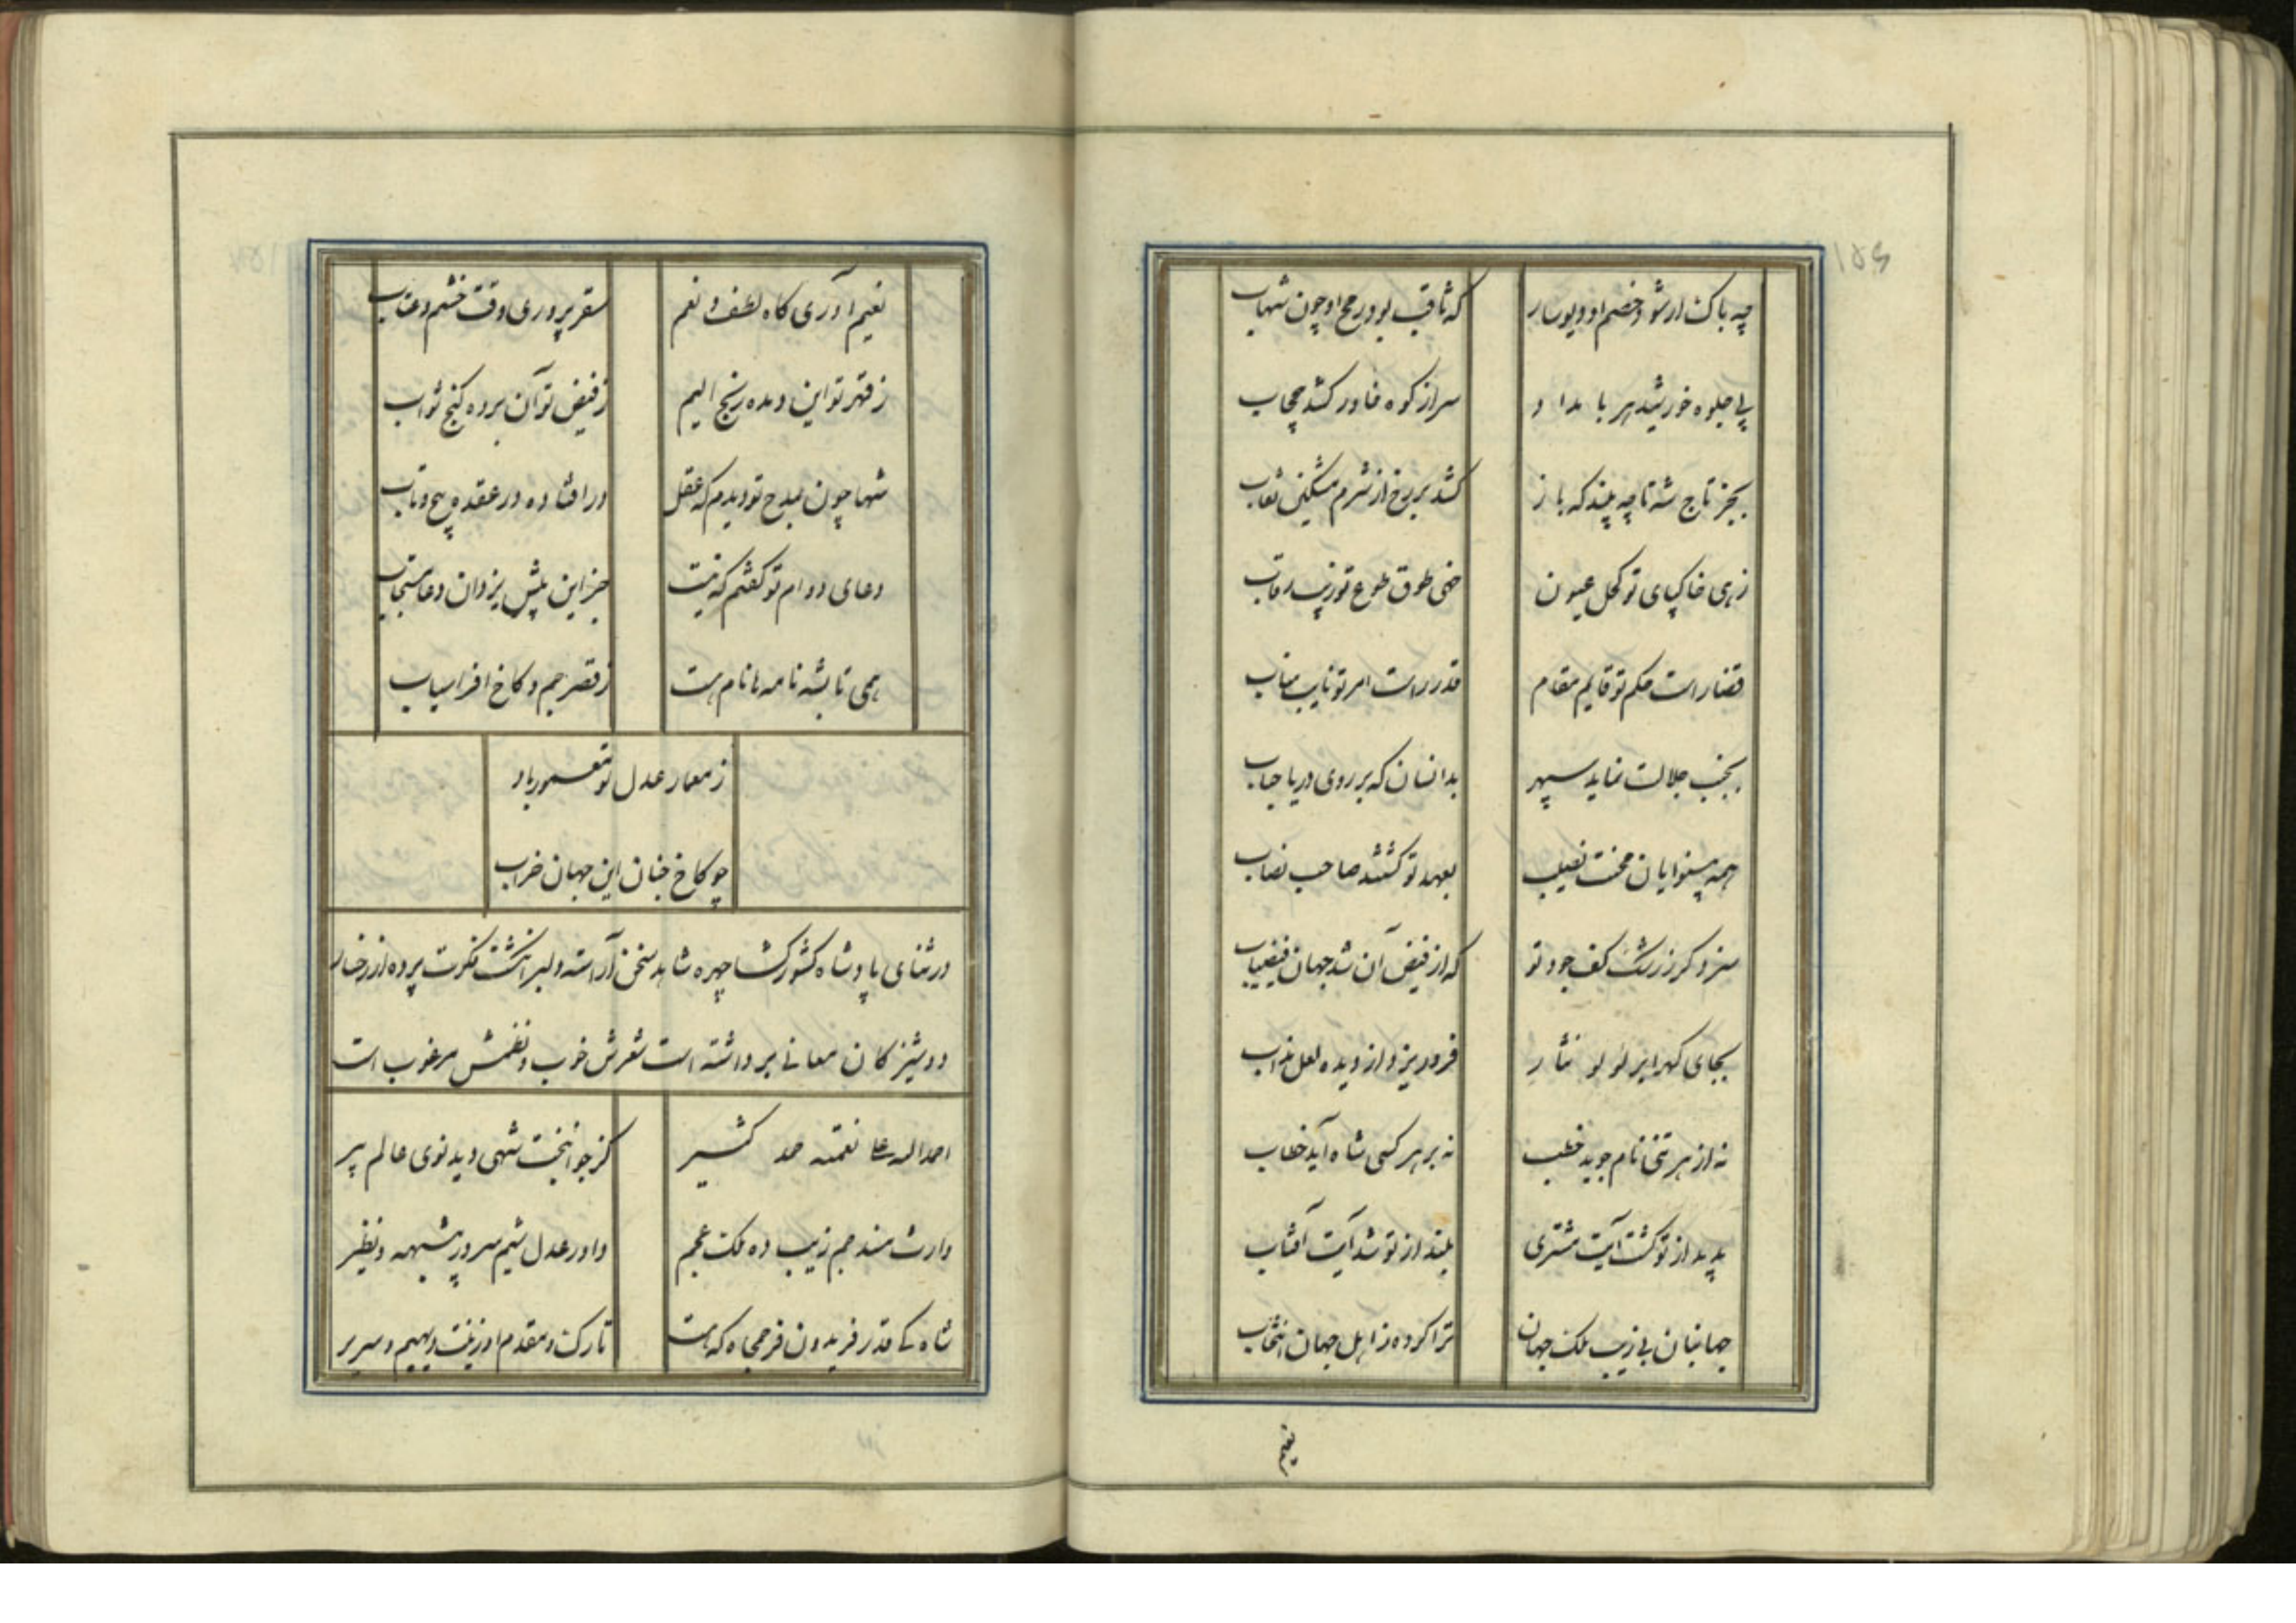 ۱۵۶
چه باک ار شود خصم او دیوسار
که ثاقب بود رمح او چون شهاب
پی جلوه خورشید هر بامداد
سر از کوه خاور کشد بیحجاب
بجز تاج شه تا چه بیند که باز
کشد بر رخ از شرم مشکین نقاب
زهی خاکپای تو کحل عیون
خهی طوق طوع تو زیب رقاب
قضا راست حکم تو قایم مقام
قدر راست امر تو نایب مناب
بجنب جلالت نماید سپهر
بدانسان که بر روی دریا حباب
همه بینوایان محنت نصیب
بعهد تو گشتند صاحب نصاب
سزد گر ز رشک کف جود تو
که از فیض آن شد جهان فیضیاب
بجای گهر ابر لولو نثار
فرو ریزد از دیده لعل مذاب
نه از هر تنی نام جوید خطب
نه بر هر کسی شاه آید خطاب
پدید از تو گشت آیت مشتری
بلند از تو شد آیت آفتاب
جهانبان پی زیب ملک جهان
ترا کرده ز اهل جهان انتخاب
نعیم
نعیم آوری گاه لطف و نعم
سقر پروری وقت خشم و عتاب
ز قهر تو این دیده رنج الیم
ز فیض تو آن برده گنج ثواب
شها چون بمدح تو دیدم که عقل
در افتاده در عقده پیچ و تاب
دعای دوام تو گفتم که نیست
جز این پیش یزدان دعا مستجاب
همی تا بشه نامه ها نام هست
ز قصر جم و کاخ افراسیاب
ز معمار عدل تو معمور باد
چو کاخ جنان این جهان خراب
در ثنای پادشاه کشور گشا چهره شاهد سخن آراسته و بسر انگشت فکرت پرده از رخسار
دوشیزگان معانی برداشته است شعرش خوب و نظمش مرغوب است
احمد الله علی نعمته حمد کثیر
کز جوانبخت شهی دید نوی عالم پیر
وارث مسند جم زیب ده ملک عجم
داور عدل شیم سرور بیشبه و نظیر
شاه کی قدر فریدون فر جمجاه که هست
تارک و مقدم او زینت دیهیم و سریر